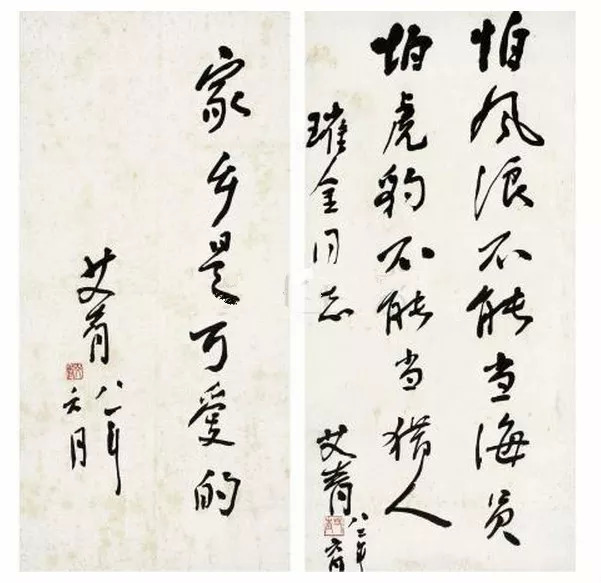 怕风浪不能当海员
怕虎豹不能当猎人
金同志
艾青
八二年
家乡是可爱的
艾青
八一年
六月